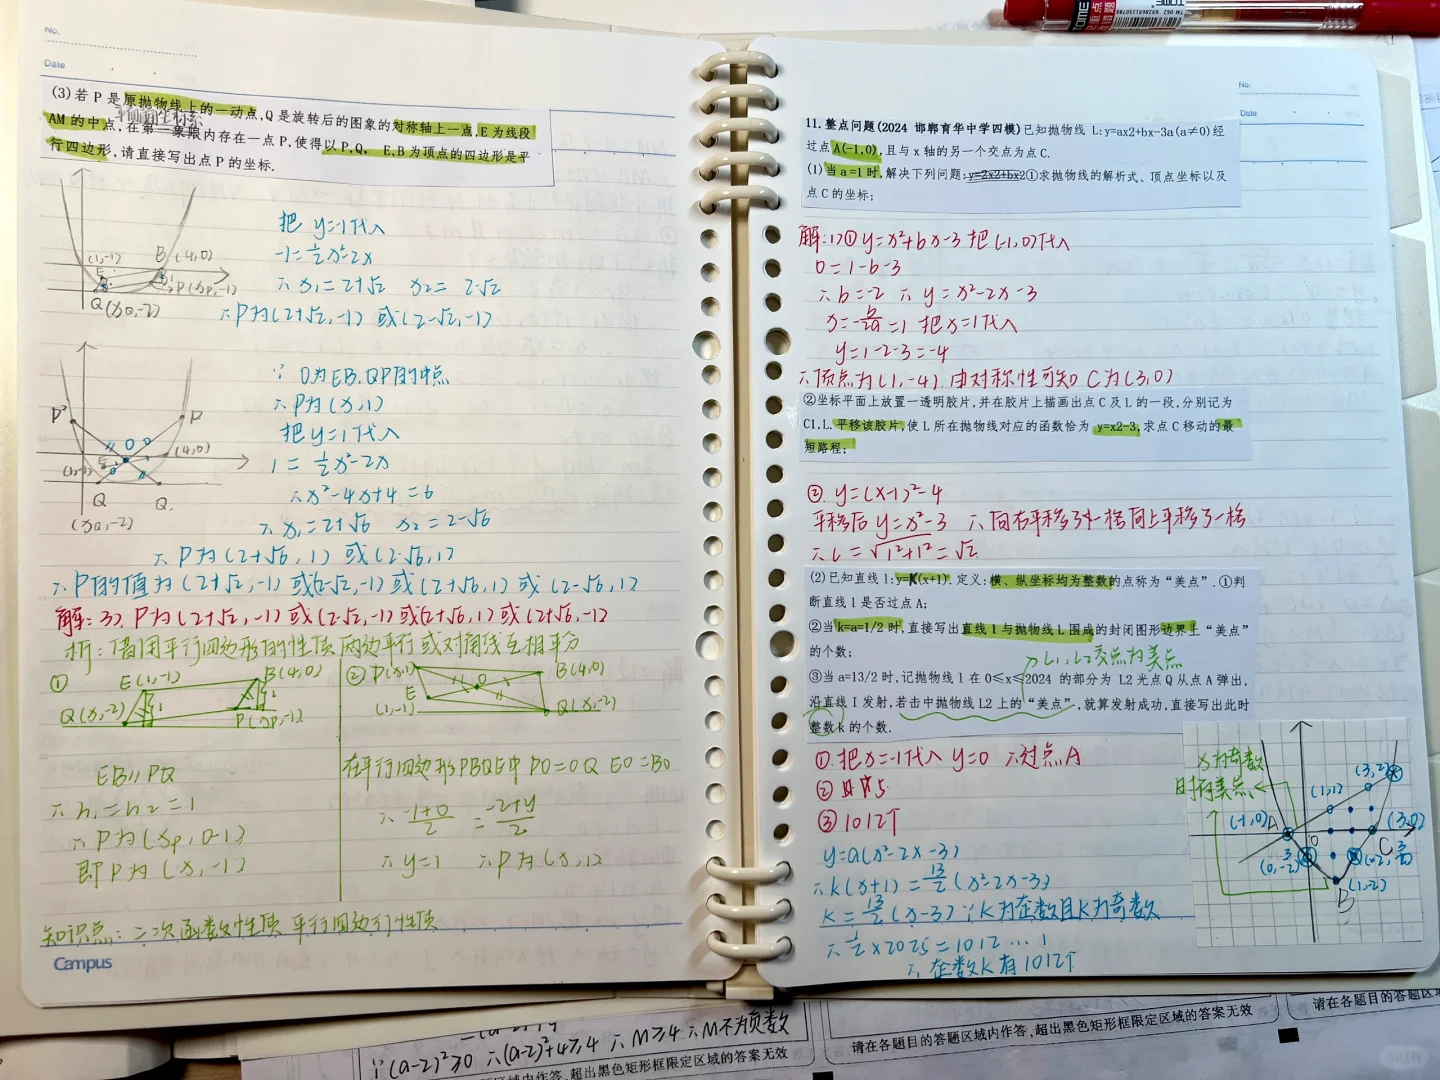 No.
Date
(3)若 P 是原抛物线上的一动点,Q 是旋转后的图象的对称轴上一点,E 为线段
平面直角坐标系
AM 的中点,在第一象限内存在一点 P,使得以 P,Q, E,B 为顶点的四边形是平
行四边形,请直接写出点 P 的坐标.
把 y=-1代入
-1=½x²-2x
∴x₁=2+√2 x₂= 2-√2
∴P为(2+√2,-1) 或(2-√2,-1)
(1,-1) B (4,0)
E
P(xp,-1)
Q(xQ,-2)
∵ O为EB.QP的中点
∴P为(x,1)
把y=1代入
1=½x²-2x
∴x²-4x+4=6
∴x₁=2+√6 x₂=2-√6
∴P为(2+√6,1) 或(2-√6,1)
P' P
O
(4,0)
(1,-1) E
Q Q
(xQ,-2)
∴P的值为(2+√2,-1)或(2-√2,-1)或(2+√6,1)或(2-√6,1)
解:3), P为(2+√2,-1)或(2-√2,-1)或(2+√6,1)或(2+√6,-1)
析:借用平行四边形的性质 两边平行或对角线互相平分
① E(1,-1) B(4,0)
Q(x,-2) P(xp,-1)
EB∥PQ
∴h₁=h₂=1
∴P为(xp,0-1)
即P为(x,-1)
② P(x,1) B(4,0)
O
E
(1,-1) Q(x,-2)
在平行四边形PBQE中 PO=OQ EO=BO
∴(-1+0)/2=(-2+y)/2
∴y=1 ∴P为(x,1)
知识点:二次函数性质 平行四边形性质
Campus
No.
Date
11.整点问题(2024 邯郸育华中学四模)已知抛物线 L:y=ax2+bx-3a(a≠0)经
过点 A(-1,0),且与 x 轴的另一个交点为点 C.
(1)当 a=1 时,解决下列问题:y=2x2+bx2①求抛物线的解析式、顶点坐标以及
点 C 的坐标;
解:1)① y=x²+bx-3 把(-1,0)代入
0=1-b-3
∴b=-2 ∴y=x²-2x-3
x=-b/2a=1 把x=1代入
y=1-2-3=-4
∴顶点为(1,-4).由对称性可知C为(3,0)
②坐标平面上放置一透明胶片,并在胶片上描画出点 C 及 L 的一段,分别记为
C1.L.平移该胶片,使 L 所在抛物线对应的函数恰为 y=x2-3,求点 C 移动的最
短路程;
②. y=(x-1)²-4
平移后 y=x²-3 ∴向右平移了一格向上平移了一格
∴L=√1²+1²=√2
(2)已知直线 l:y=k(x+1).定义:横、纵坐标均为整数的点称为“美点”.①判
断直线 l 是否过点 A;
②当 k=a=1/2 时,直接写出直线 l 与抛物线 L 围成的封闭图形边界上“美点”
的个数;
L₁,L₂交点为美点
③当 a=13/2 时,记抛物线 l 在 0≤x≤2024 的部分为 L2 光点 Q 从点 A 弹出,
沿直线 I 发射,若击中抛物线 L2 上的“美点”,就算发射成功,直接写出此时
整数 k 的个数.
①.把x=-1代入 y=0 ∴过点A
②
③1012个
y=a(x²-2x-3)
∴k(x+1)=13/2(x²-2x-3)
k=13/2(x-3)∵k为整数且k为奇数
∴½×2025=1012…1
∴整数k有1012个
x为奇数
时有美点
(3,2)
(1,1)
(-1,0) A O (3,0)
C
(0,-3/2)
(1,-2)
B
∵(a-2)²≥0 ∴(a-2)²+4≥4 ∴M≥4 ∴M不为负数
超出黑色矩形框限定区域的答案无效
请在各题目的答题区域内作答,超出黑色矩形框限定区域的答案无效
请在各题目的答题区域